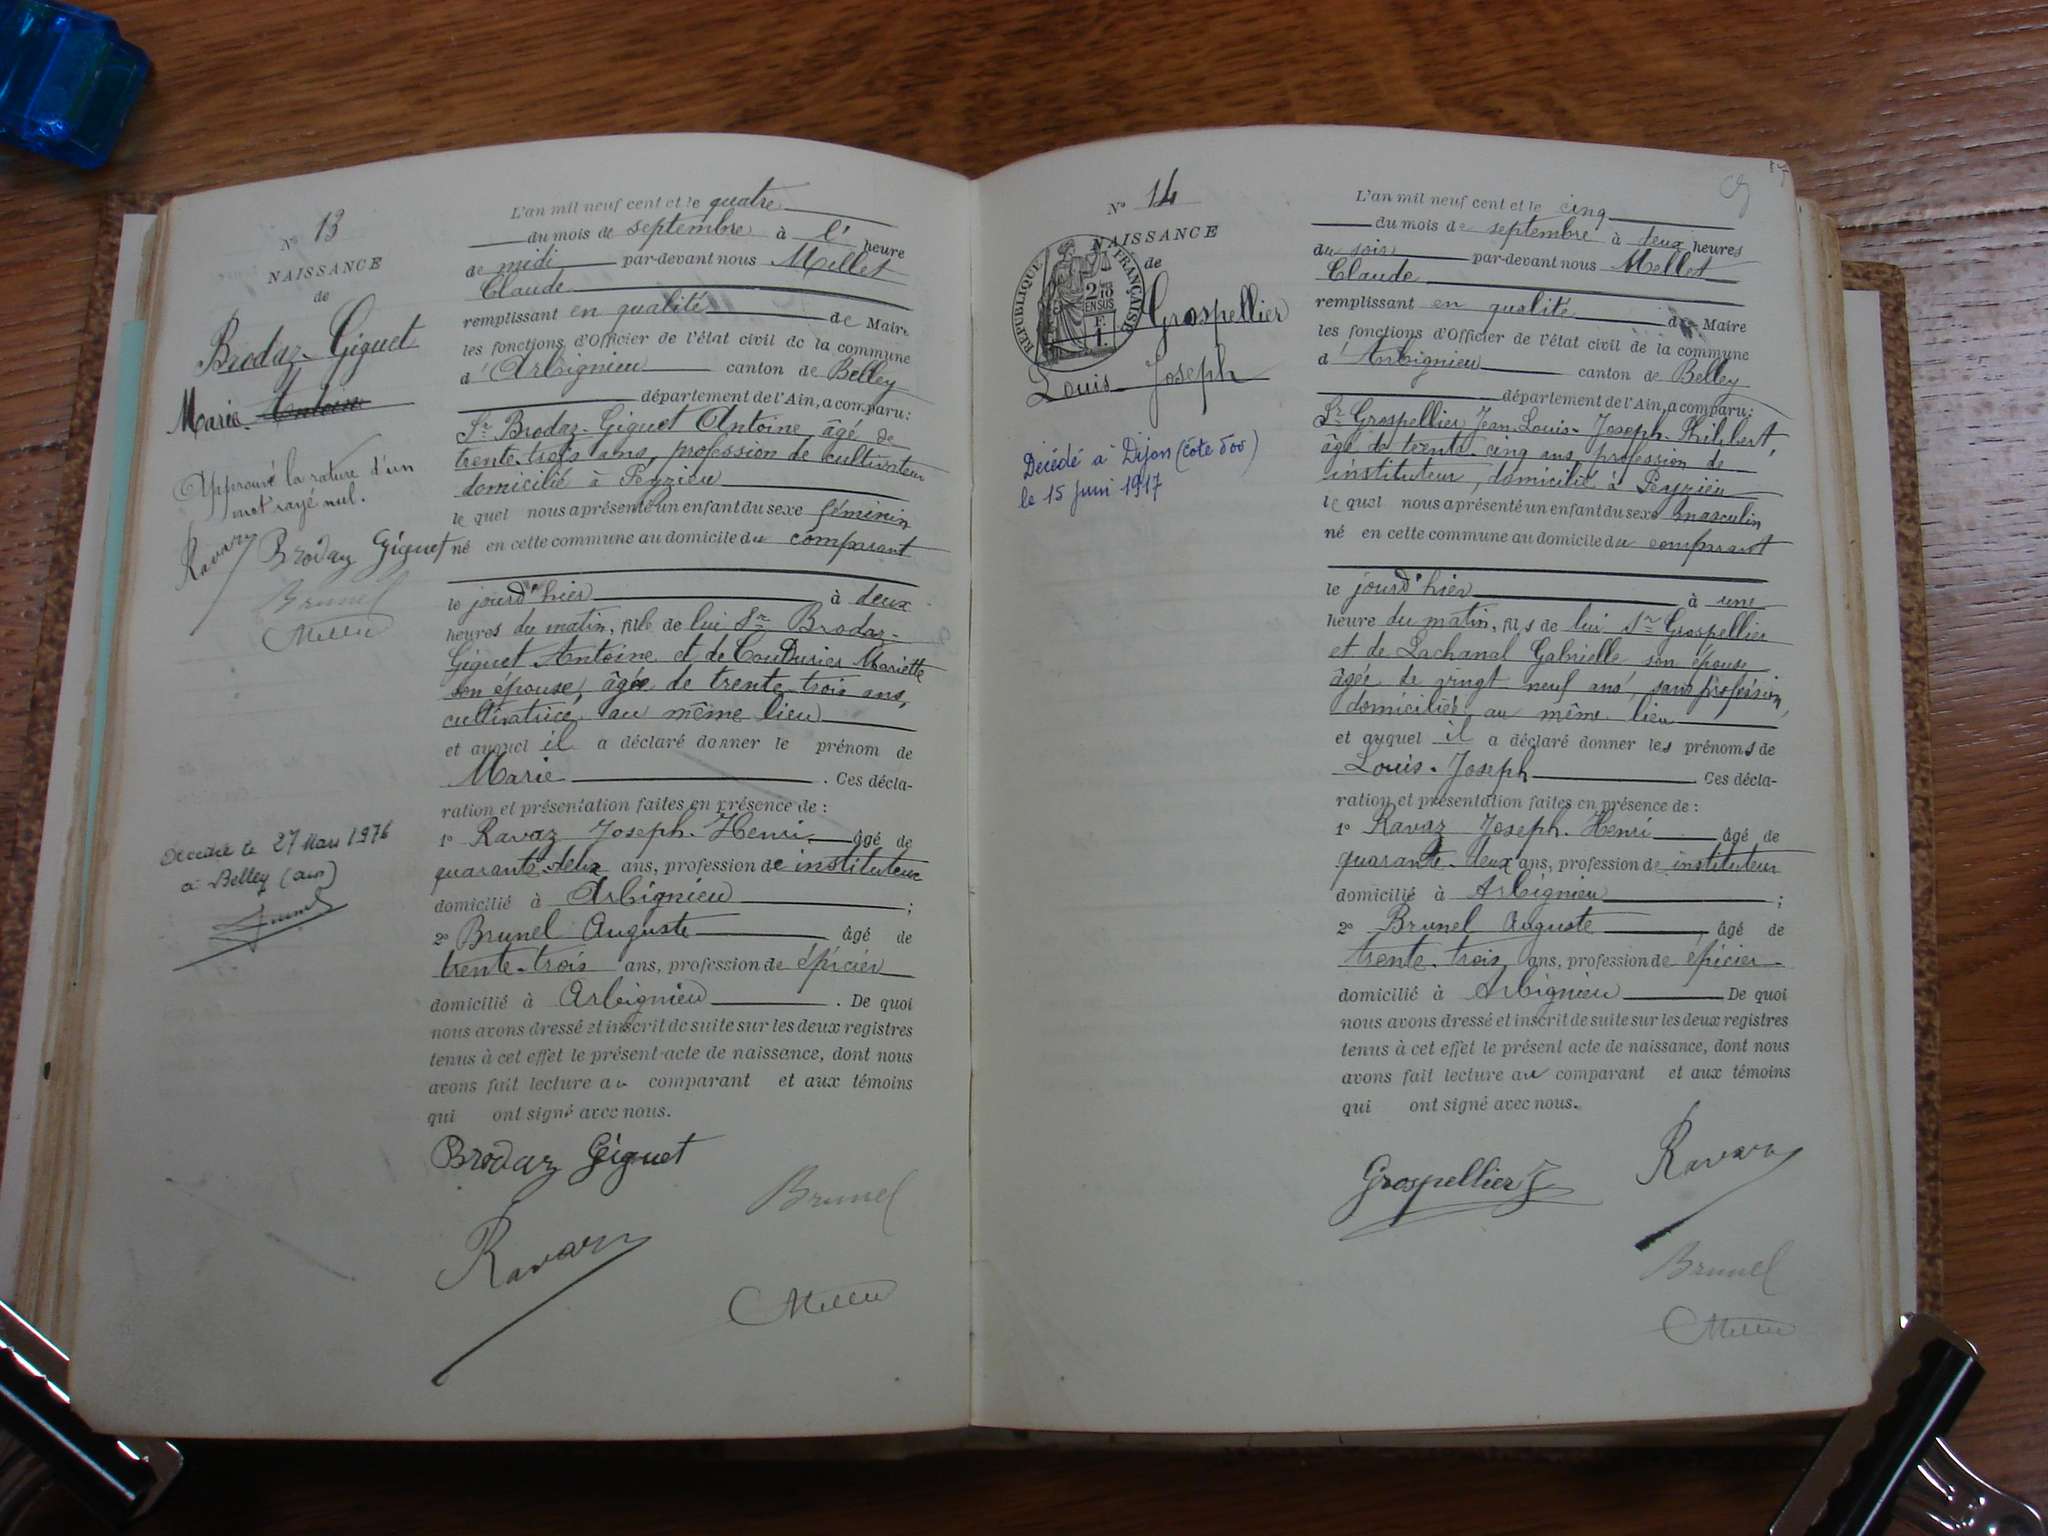 N° 13
NAISSANCE
de
Brodaz-Giguet
Marie Antoine
Approuvé la rature d'un
mot rayé nul.
Ravaz Brodaz Giguet
Brunel
Millet
Décédée le 27 Mars 1976
à Belley (ain)
L'an mil neuf cent et le quatre
du mois de septembre à l' heure
de midi par-devant nous Millet
Claude
remplissant en qualité de Maire
les fonctions d'Officier de l'état civil de la commune
d'Arbignieu canton de Belley
département de l'Ain, a comparu:
Sr Brodaz-Giguet Antoine âgé de
trente-trois ans, profession de cultivateur
domicilié à Peyzieu
le quel nous a présenté un enfant du sexe féminin
né en cette commune au domicile du comparant
le jourd'hier à deux
heures du matin, fille de lui Sr Brodaz-
Giguet Antoine et de Coudurier Mariette
son épouse, âgée de trente-trois ans,
cultivatrice au même lieu
et auquel il a déclaré donner le prénom de
Marie . Ces décla-
ration et présentation faites en présence de :
1° Ravaz Joseph-Henri âgé de
quarante-deux ans, profession de instituteur
domicilié à Arbignieu ;
2° Brunel Auguste âgé de
trente-trois ans, profession de épicier
domicilié à Arbignieu . De quoi
nous avons dressé et inscrit de suite sur les deux registres
tenus à cet effet le présent acte de naissance, dont nous
avons fait lecture au comparant et aux témoins
qui ont signé avec nous.
Brodaz Giguet
Brunel
Ravaz
Millet
N° 14
NAISSANCE
de
RÉPUBLIQUE FRANÇAISE
2/10 EN SUS
F. 1.
Grospellier
Louis Joseph
Décédé à Dijon (côte d'or)
le 15 juin 1917
L'an mil neuf cent et le cinq
du mois de septembre à deux heures
du soir par-devant nous Millet
Claude
remplissant en qualité de Maire
les fonctions d'Officier de l'état civil de la commune
d'Arbignieu canton de Belley
département de l'Ain, a comparu:
Sr Grospellier Jean-Louis-Joseph-Philibert,
âgé de trente-cinq ans, profession de
instituteur, domicilié à Peyzieu
le quel nous a présenté un enfant du sexe masculin
né en cette commune au domicile du comparant
le jourd'hier à une
heure du matin, fils de lui Sr Grospellier
et de Lachanal Gabrielle son épouse
âgée de vingt neuf ans, sans profession,
domiciliée au même lieu
et auquel il a déclaré donner les prénoms de
Louis-Joseph . Ces décla-
ration et présentation faites en présence de :
1° Ravaz Joseph-Henri âgé de
quarante-deux ans, profession de instituteur
domicilié à Arbignieu ;
2° Brunel Auguste, âgé de
trente-trois ans, profession de épicier
domicilié à Arbignieu De quoi
nous avons dressé et inscrit de suite sur les deux registres
tenus à cet effet le présent acte de naissance, dont nous
avons fait lecture au comparant et aux témoins
qui ont signé avec nous.
Grospellier J
Ravaz
Brunel
Millet